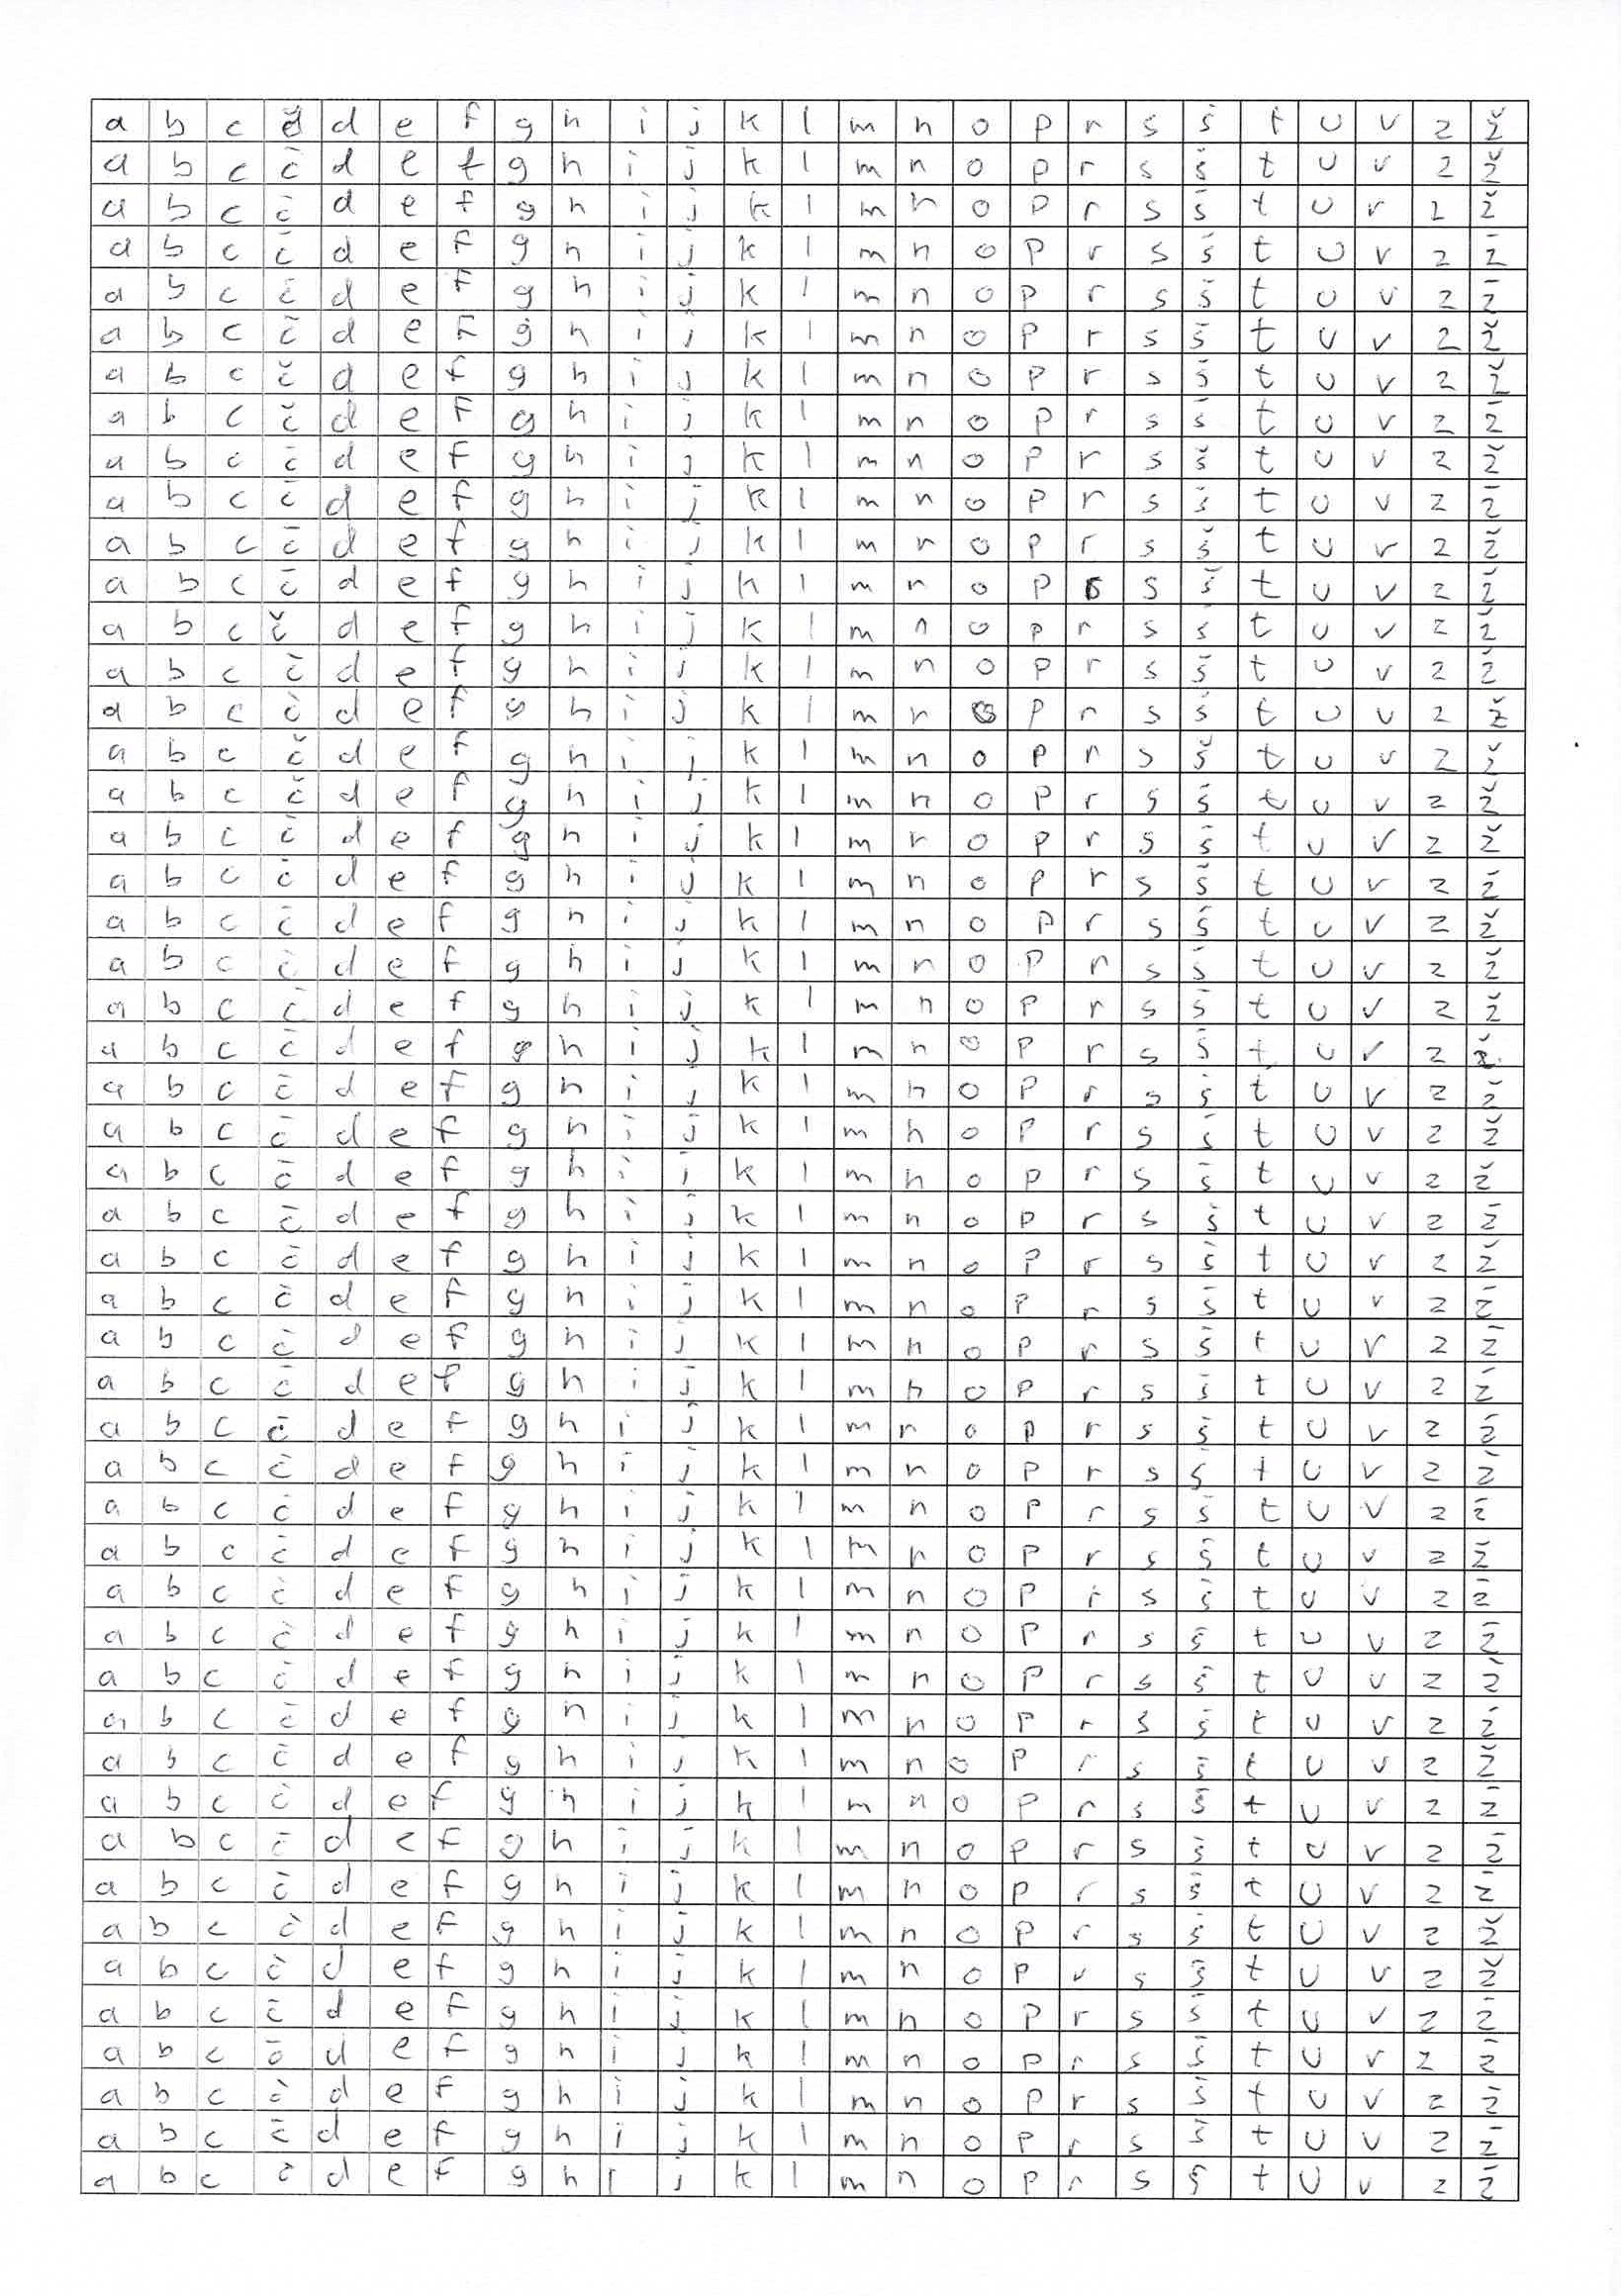 a b c č d e f g h i j k l m n o p r s š t u v z ž
a b c č d e f g h i j k l m n o p r s š t u v z ž
a b c č d e f g h i j k l m n o p r s š t u v z ž
a b c č d e f g h i j k l m n o p r s š t u v z ž
a b c č d e f g h i j k l m n o p r s š t u v z ž
a b c č d e f g h i j k l m n o p r s š t u v z ž
a b c č d e f g h i j k l m n o p r s š t u v z ž
a b c č d e f g h i j k l m n o p r s š t u v z ž
a b c č d e f g h i j k l m n o p r s š t u v z ž
a b c č d e f g h i j k l m n o p r s š t u v z ž
a b c č d e f g h i j k l m n o p r s š t u v z ž
a b c č d e f g h i j k l m n o p r s š t u v z ž
a b c č d e f g h i j k l m n o p r s š t u v z ž
a b c č d e f g h i j k l m n o p r s š t u v z ž
a b c č d e f g h i j k l m n o p r s š t u v z ž
a b c č d e f g h i j k l m n o p r s š t u v z ž
a b c č d e f g h i j k l m n o p r s š t u v z ž
a b c č d e f g h i j k l m n o p r s š t u v z ž
a b c č d e f g h i j k l m n o p r s š t u v z ž
a b c č d e f g h i j k l m n o p r s š t u v z ž
a b c č d e f g h i j k l m n o p r s š t u v z ž
a b c č d e f g h i j k l m n o p r s š t u v z ž
a b c č d e f g h i j k l m n o p r s š t u v z ž
a b c č d e f g h i j k l m n o p r s š t u v z ž
a b c č d e f g h i j k l m n o p r s š t u v z ž
a b c č d e f g h i j k l m n o p r s š t u v z ž
a b c č d e f g h i j k l m n o p r s š t u v z ž
a b c č d e f g h i j k l m n o p r s š t u v z ž
a b c č d e f g h i j k l m n o p r s š t u v z ž
a b c č d e f g h i j k l m n o p r s š t u v z ž
a b c č d e f g h i j k l m n o p r s š t u v z ž
a b c č d e f g h i j k l m n o p r s š t u v z ž
a b c č d e f g h i j k l m n o p r s š t u v z ž
a b c č d e f g h i j k l m n o p r s š t u v z ž
a b c č d e f g h i j k l m n o p r s š t u v z ž
a b c č d e f g h i j k l m n o p r s š t u v z ž
a b c č d e f g h i j k l m n o p r s š t u v z ž
a b c č d e f g h i j k l m n o p r s š t u v z ž
a b c č d e f g h i j k l m n o p r s š t u v z ž
a b c č d e f g h i j k l m n o p r s š t u v z ž
a b c č d e f g h i j k l m n o p r s š t u v z ž
a b c č d e f g h i j k l m n o p r s š t u v z ž
a b c č d e f g h i j k l m n o p r s š t u v z ž
a b c č d e f g h i j k l m n o p r s š t u v z ž
a b c č d e f g h i j k l m n o p r s š t u v z ž
a b c č d e f g h i j k l m n o p r s š t u v z ž
a b c č d e f g h i j k l m n o p r s š t u v z ž
a b c č d e f g h i j k l m n o p r s š t u v z ž
a b c č d e f g h i j k l m n o p r s š t u v z ž
a b c č d e f g h i j k l m n o p r s š t u v z ž